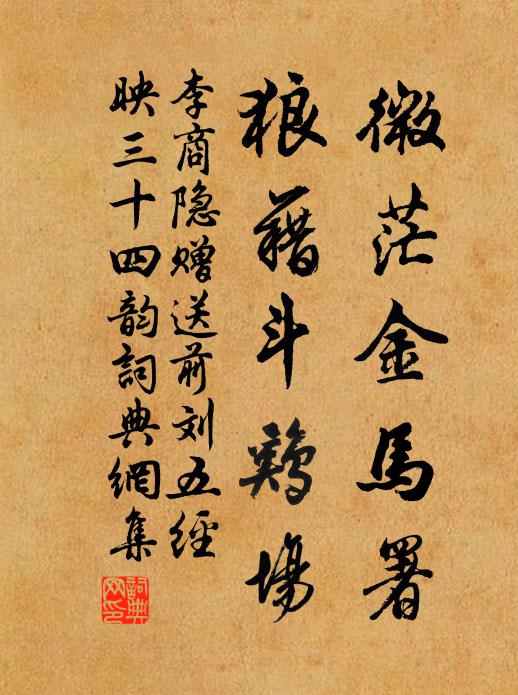 微茫金馬署
狼藉斗鷄場
李商隐赠送前刘五經
映三十四韵詞典網集
詞典网印